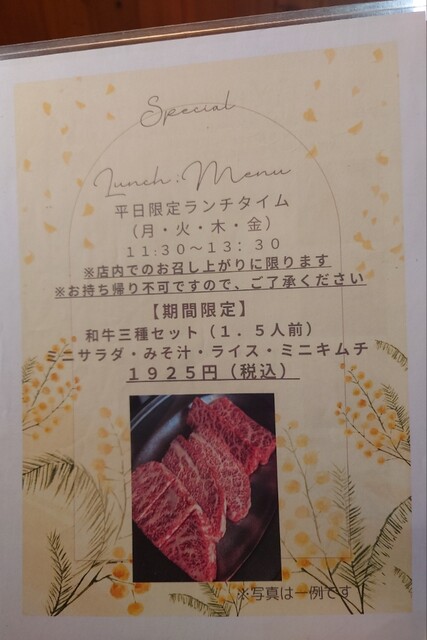 Special
Lunch. Menu
平日限定ランチタイム
（月・火・木・金）
１１:３０～１３：３０
※店内でのお召し上がりに限ります
※お持ち帰り不可ですので、ご了承ください
【期間限定】
和牛三種セット（１．５人前）
ミニサラダ・みそ汁・ライス・ミニキムチ
１９２５円（税込）
※写真は一例です